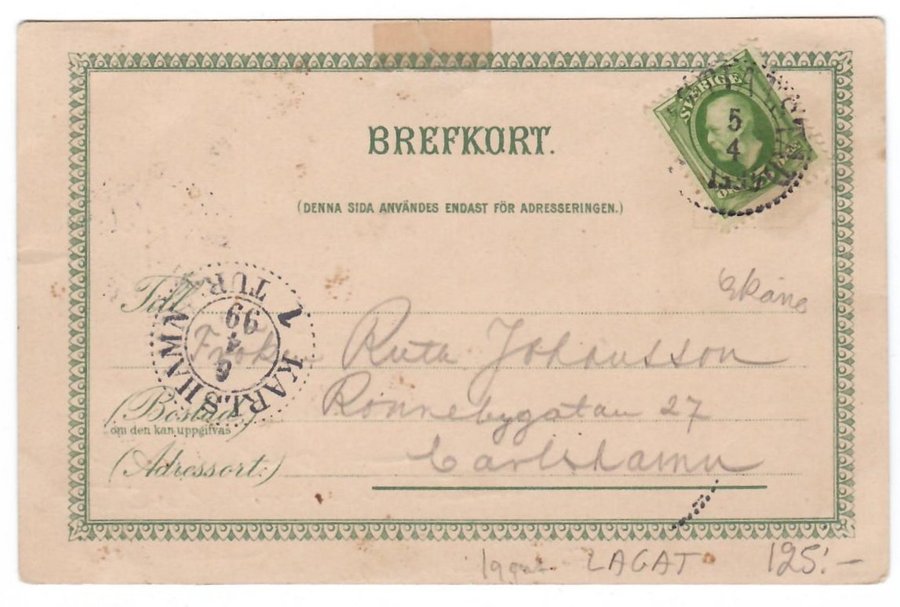 BREFKORT.
SVERIGE
5
4
(DENNA SIDA ANVÄNDES ENDAST FÖR ADRESSERINGEN.)
Till
Fröken Ruth Johansson
(Bostad)
om den kan uppgifvas
Ronnebygatan 27
(Adressort:)
Carlshamn
KARLSHAMN
1 TUR
6
4
99
LAGAT 125:-